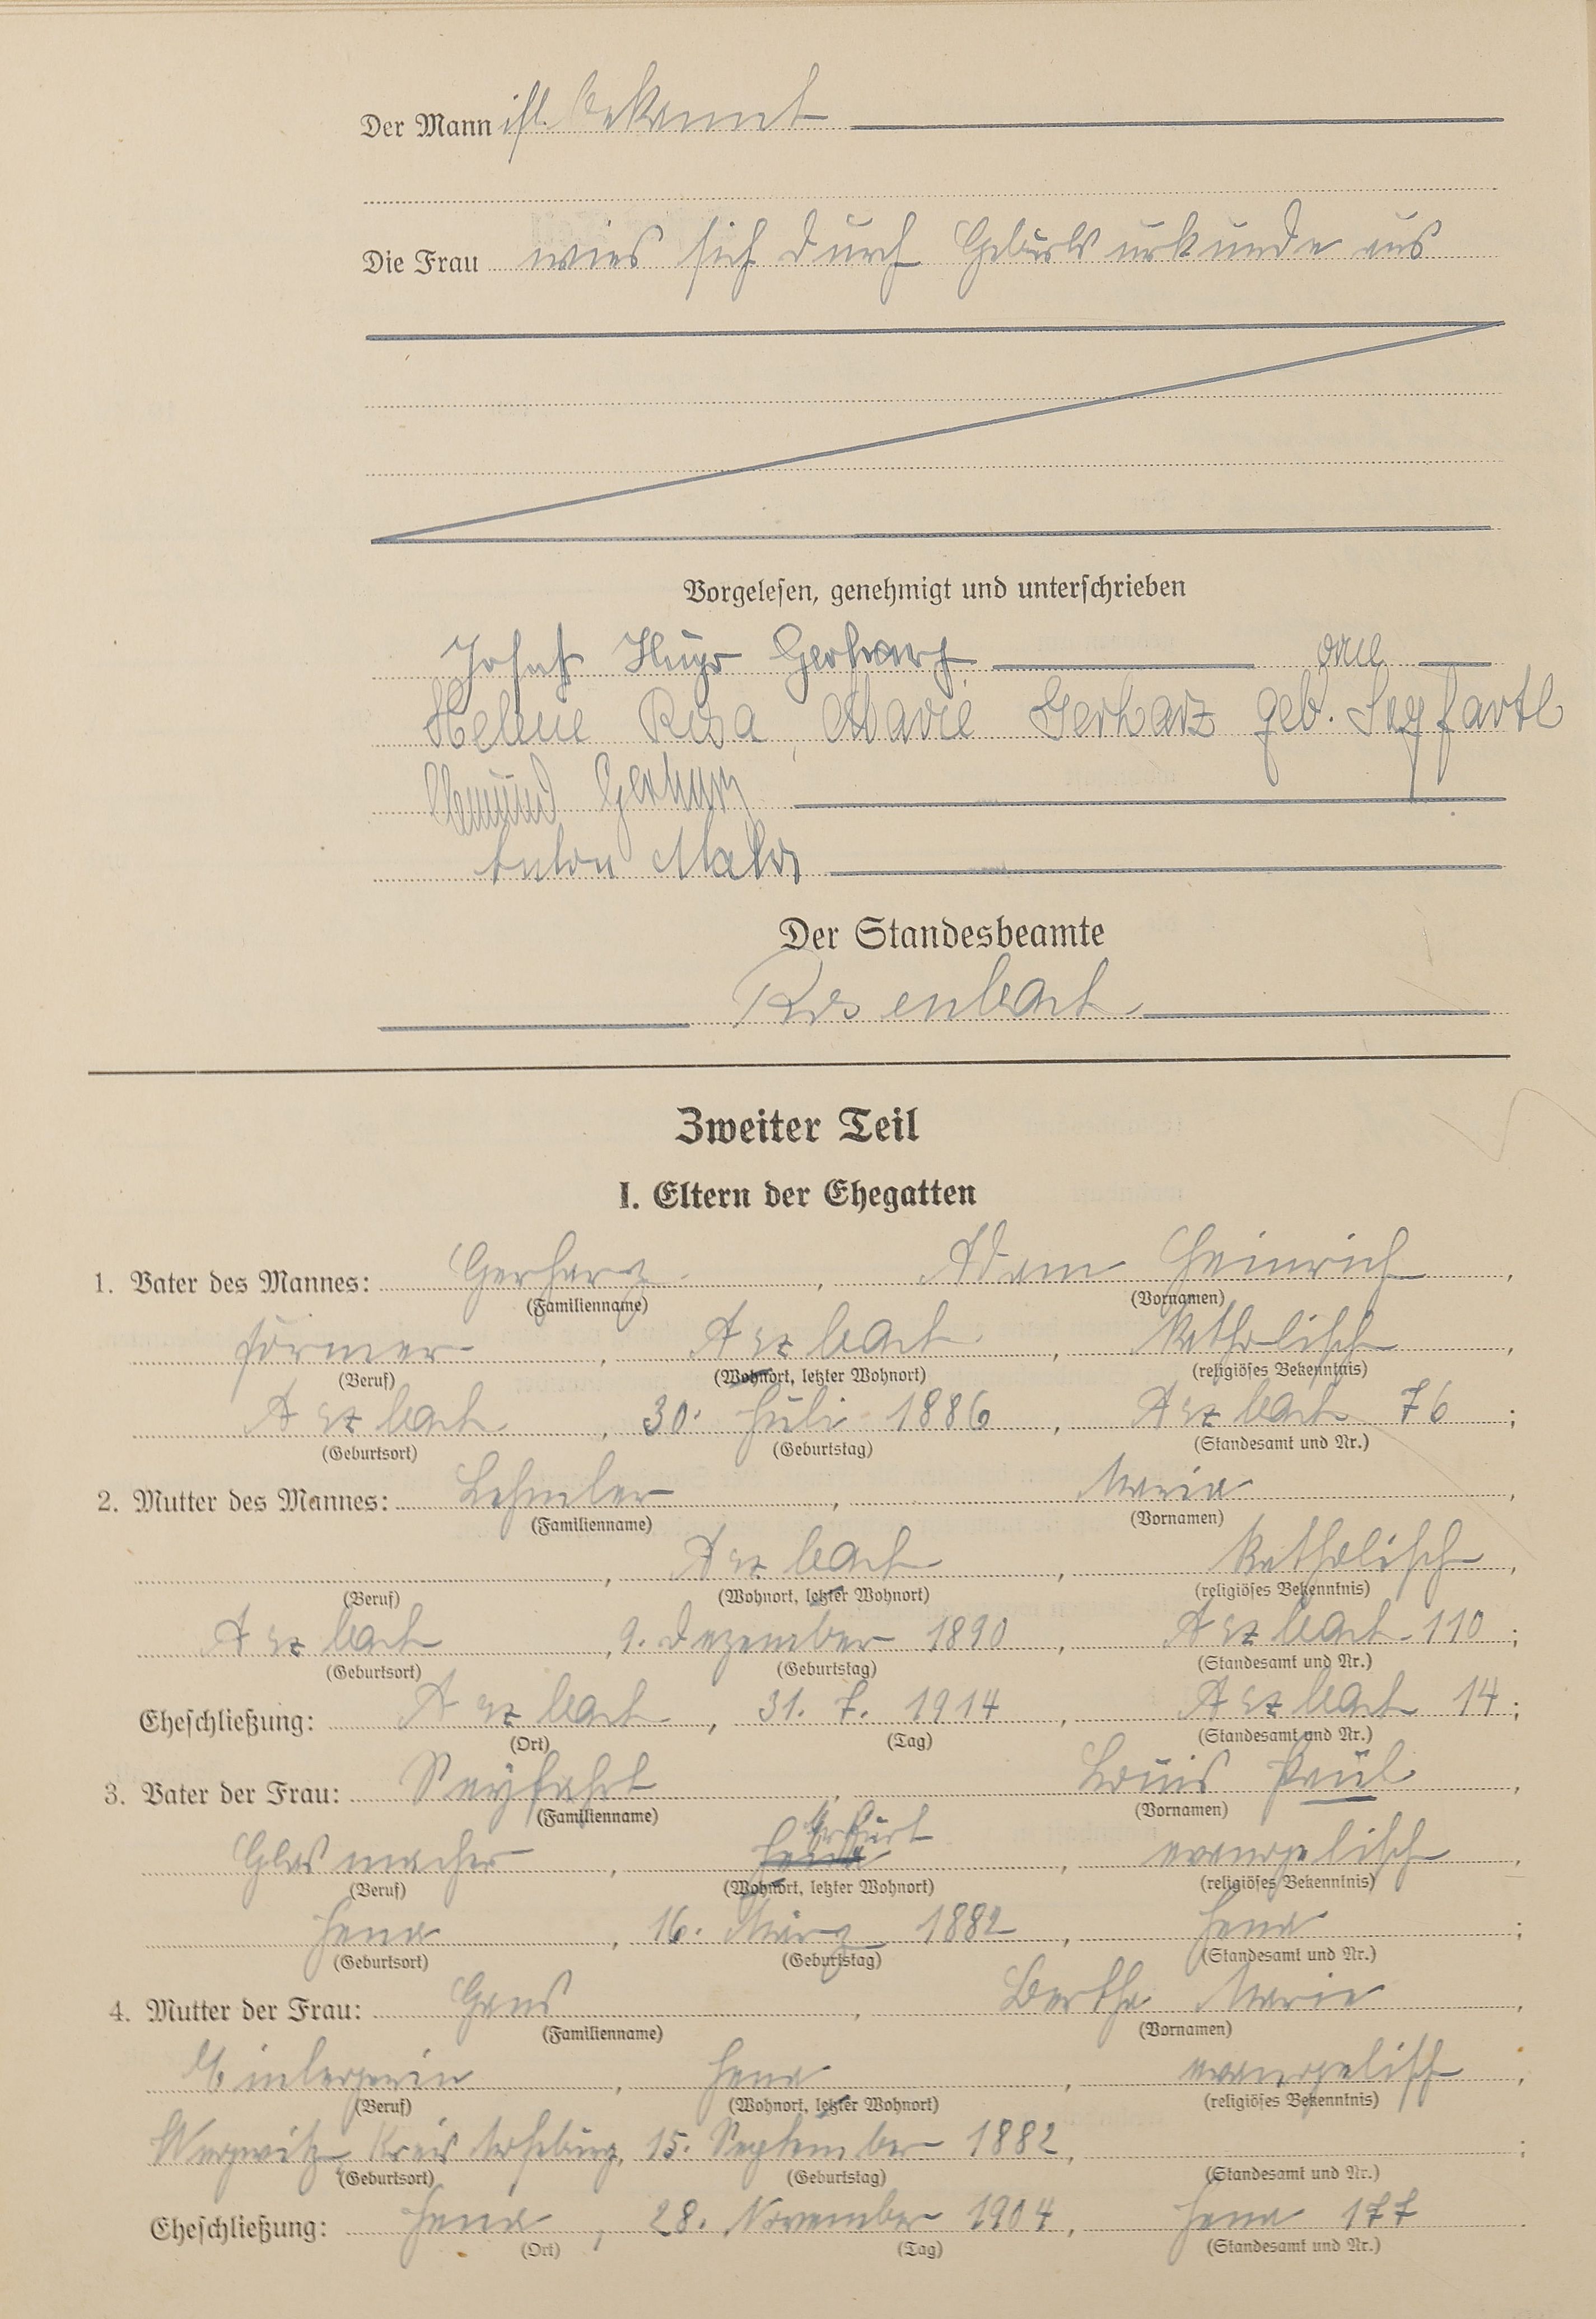 Der Mann ist bekannt
Die Frau wies sich durch Geburtsurkunde aus
Vorgelesen, genehmigt und unterschrieben
Hugo Gerharz
Helene Rosa, Marie Gerharz geb. Seyfarth
Gerharz
Anton
Der Standesbeamte
Rosenbach
Zweiter Teil
I. Eltern der Ehegatten
1. Vater des Mannes: Gerharz, Adam Heinrich,
(Familienname) (Vornamen)
Former, Arzbach, katholisch,
(Beruf) (Wohnort, letzter Wohnort) (religiöses Bekenntnis)
Arzbach, 30. Juli 1886, Arzbach 76;
(Geburtsort) (Geburtstag) (Standesamt und Nr.)
2. Mutter des Mannes: Lehmler, Maria,
(Familienname) (Vornamen)
, Arzbach, katholisch,
(Beruf) (Wohnort, letzter Wohnort) (religiöses Bekenntnis)
Arzbach, 9. Dezember 1890, Arzbach 110;
(Geburtsort) (Geburtstag) (Standesamt und Nr.)
Eheschließung: Arzbach, 31. 7. 1914, Arzbach 14;
(Ort) (Tag) (Standesamt und Nr.)
3. Vater der Frau: Seyfahrt, Louis Paul,
(Familienname) (Vornamen)
Erfurt
Glasmacher, Jena, evangelisch,
(Beruf) (Wohnort, letzter Wohnort) (religiöses Bekenntnis)
Jena, 16. März 1882, Jena;
(Geburtsort) (Geburtstag) (Standesamt und Nr.)
4. Mutter der Frau: Gans, Bertha Marie,
(Familienname) (Vornamen)
Einlegerin, Jena, evangelisch,
(Beruf) (Wohnort, letzter Wohnort) (religiöses Bekenntnis)
Kreis 15. September 1882, ;
(Geburtsort) (Geburtstag) (Standesamt und Nr.)
Eheschließung: Jena, 28. November 1904, Jena 177
(Ort) (Tag) (Standesamt und Nr.)